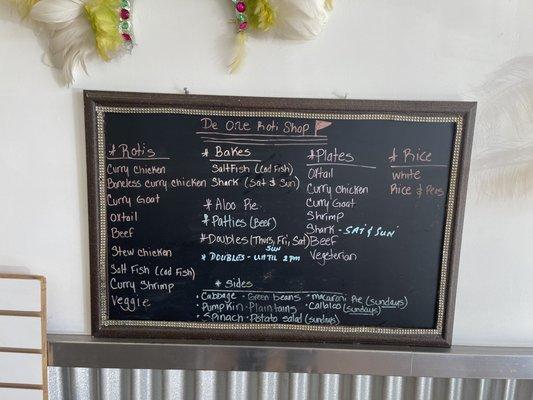 De One Roti Shop
* Rotis
Curry chicken
Boneless curry chicken
Curry Goat
oxtail
Beef
Stew chicken
Salt Fish (Cod Fish)
Curry Shrimp
Veggie
* Bakes
SaltFish (Cod Fish)
Shark (Sat & Sun)
* Aloo Pie
* Patties (Beef)
* Doubles (Thurs, Fri, Sat)
SUN
* DOUBLES - UNTIL 2PM
* Plates
Oxtail
Curry chicken
Curry Goat
Shrimp
Shark - SAT & SUN
Beef
Vegeterian
* Rice
White
Rice & Peas
* Sides
• Cabbage • Green beans • macaroni Pie (Sundays)
• Pumpkin • Plantains • Callaloo (Sundays)
• Spinach • Potato Salad (Sundays)